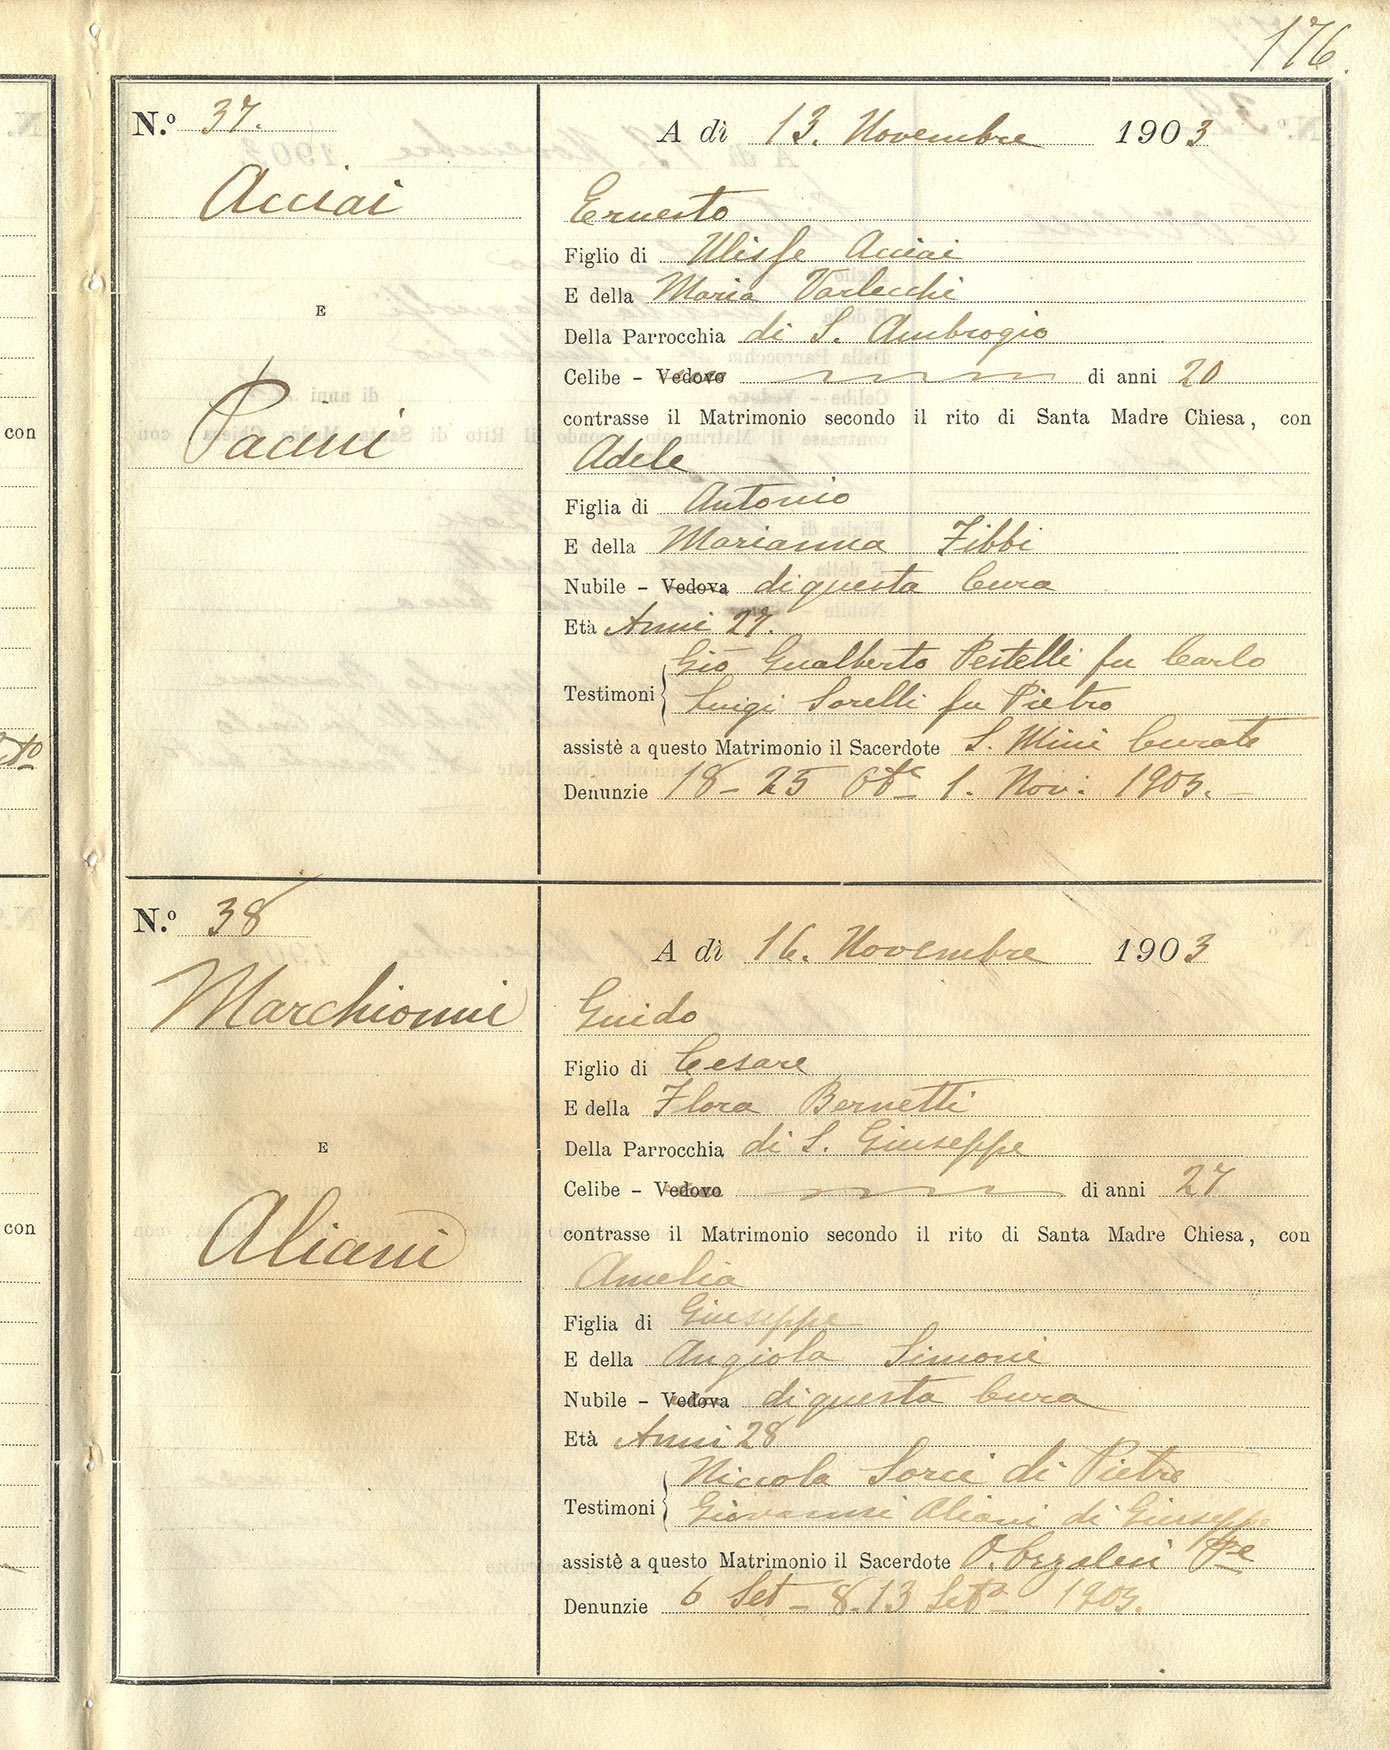 176.
N.º 37.
A dì 13. Novembre 1903
Acciai
E
Pacini
Ernesto
Figlio di Ulisse Acciai
E della Maria Varlecchi
Della Parrocchia di S. Ambrogio
Celibe - Vedovo di anni 20
contrasse il Matrimonio secondo il rito di Santa Madre Chiesa, con
Adele
Figlia di Antonio
E della Marianna Zibbi
Nubile - Vedova di questa Cura
Età Anni 27.
Testimoni { Gio Gualberto Pestelli fu Carlo
Luigi Sorelli fu Pietro
assistè a questo Matrimonio il Sacerdote S. Mini Curato
Denunzie 18 - 25 Otte 1. Nov: 1903. -
N.º 38
A dì 16. Novembre 1903
Marchionni
E
Aliani
Guido
Figlio di Cesare
E della Flora Bernetti
Della Parrocchia di S. Giuseppe
Celibe - Vedovo di anni 27
contrasse il Matrimonio secondo il rito di Santa Madre Chiesa, con
Amelia
Figlia di Giuseppe
E della Angiola Simoni
Nubile - Vedova di questa Cura
Età Anni 28
Testimoni { Niccola Sorci di Pietro
Giovanni Aliani di Giuseppe
assistè a questo Matrimonio il Sacerdote
Denunzie 6 Set - 8. 13 Setta 1903.
con
con